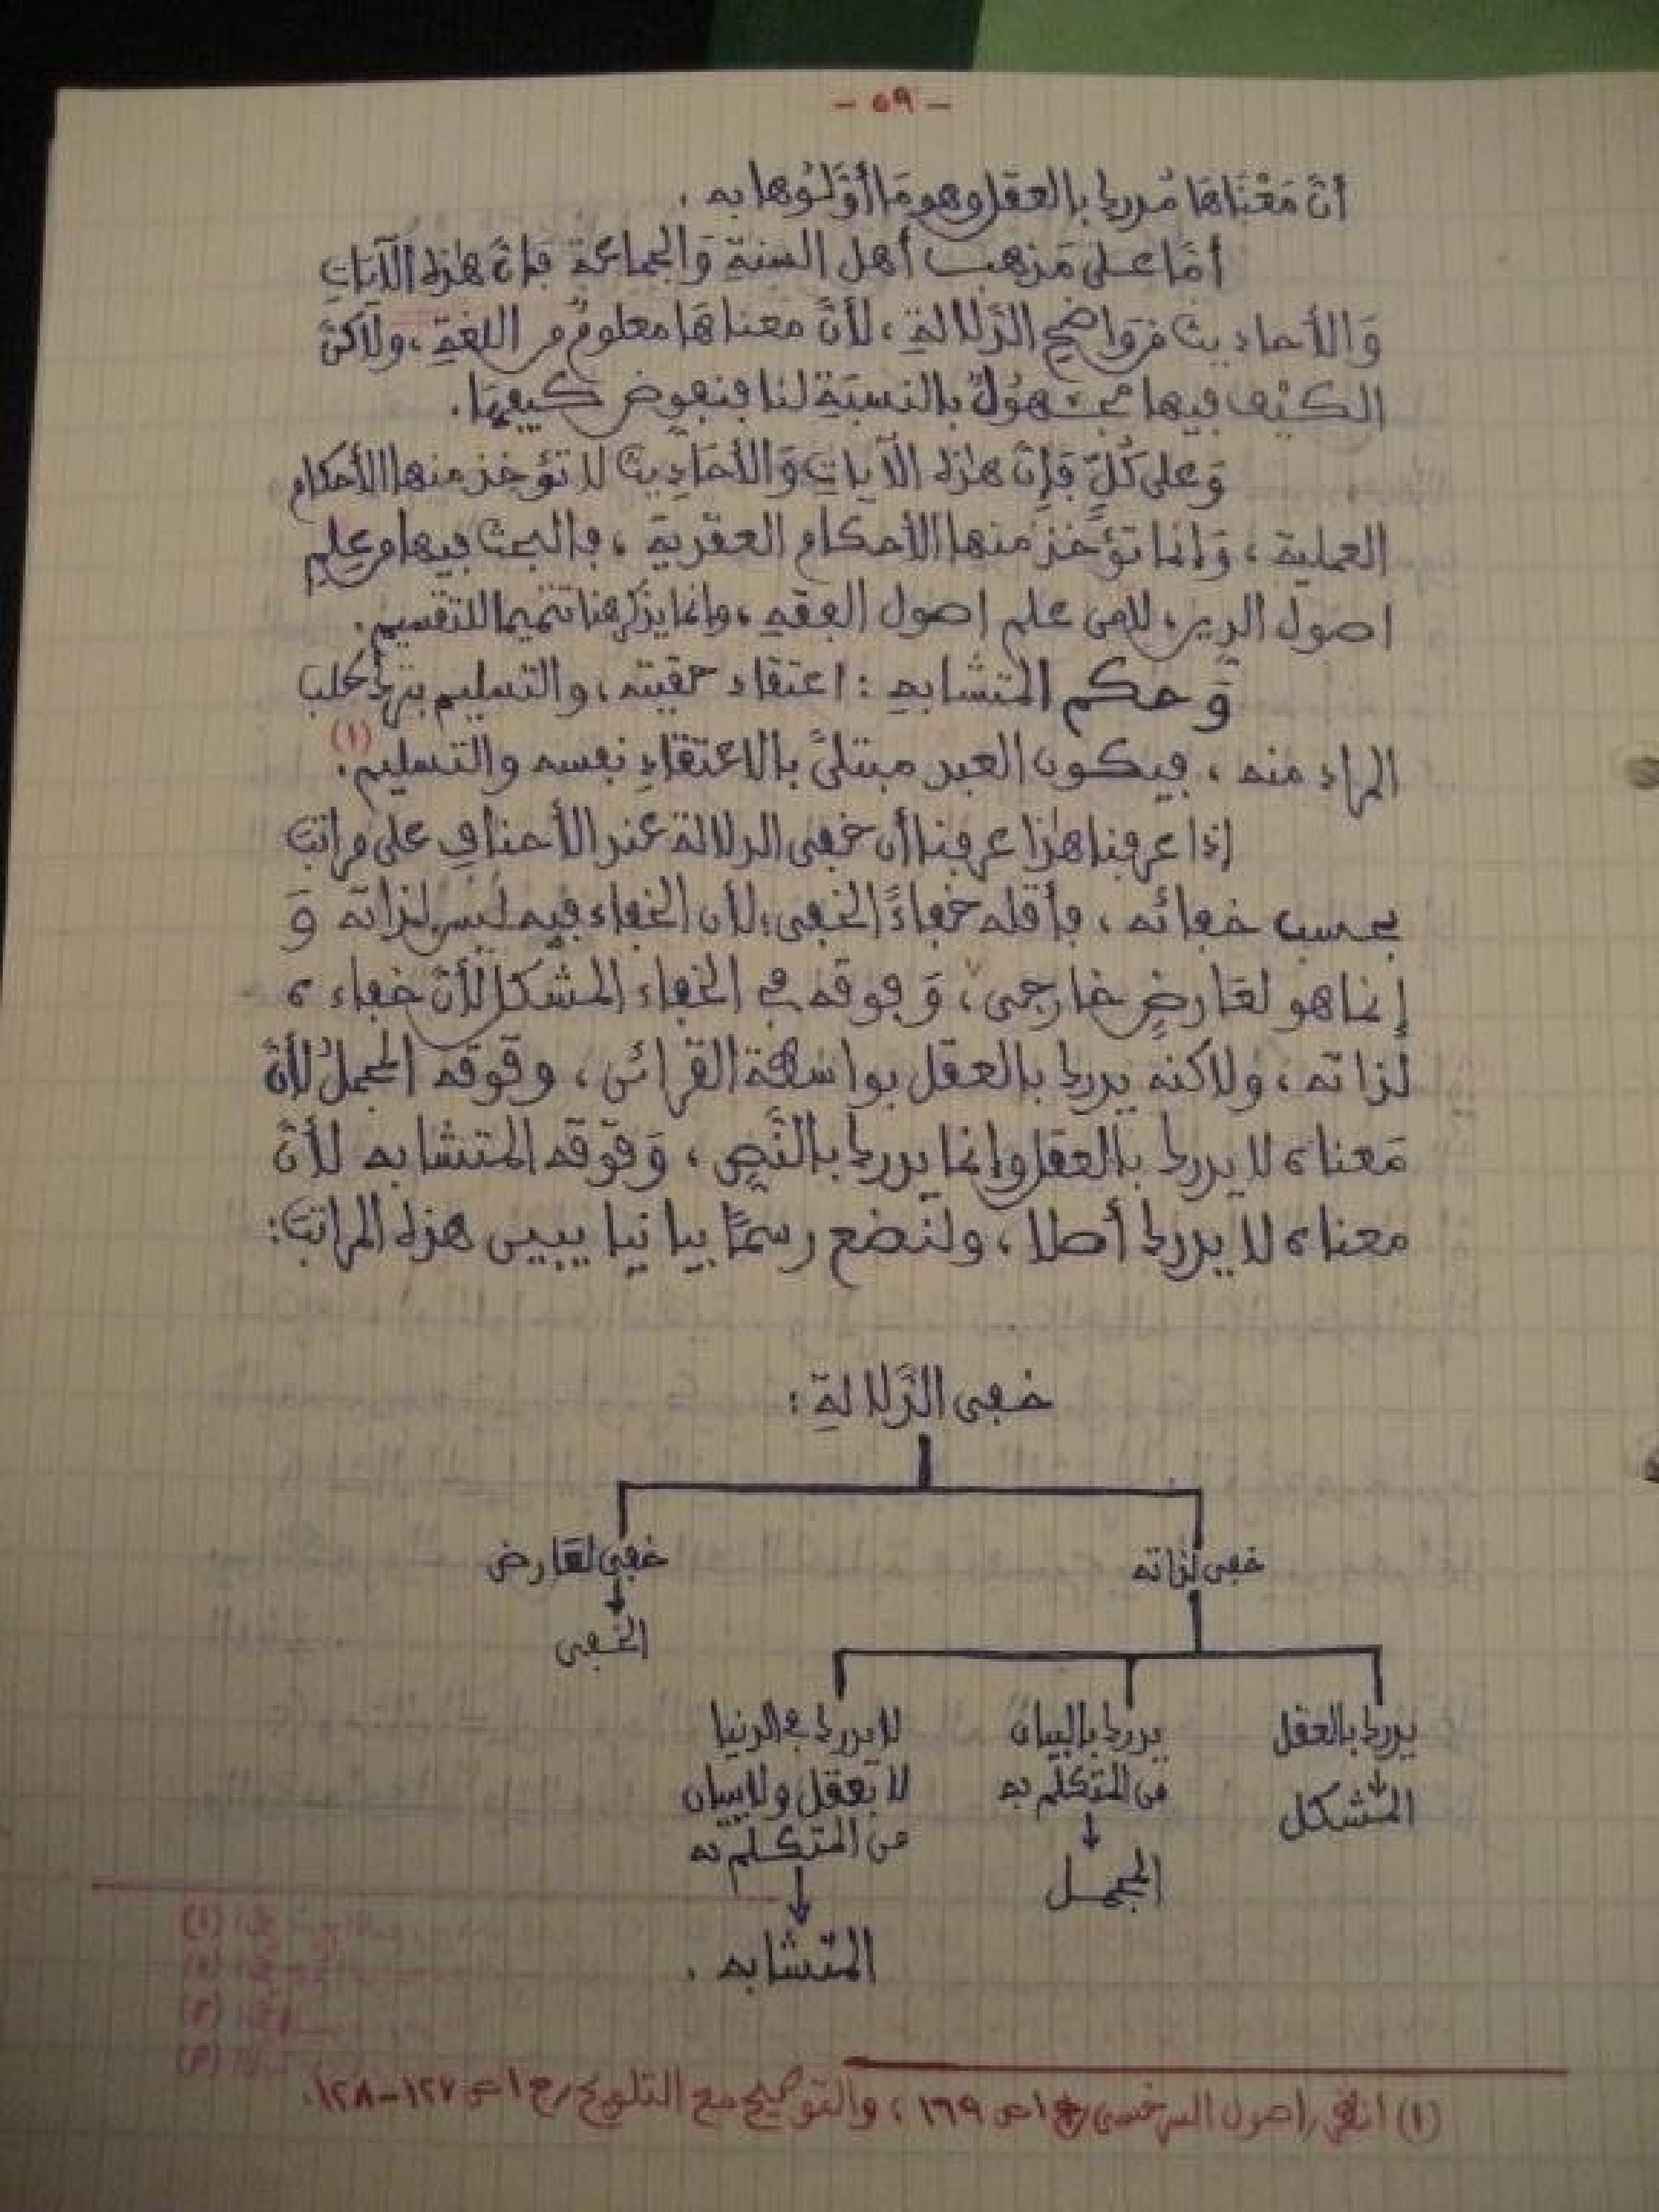 - ٥٩ -
أنَّ مَعْنَاهَا مُدركا بالعقل وهو مَا أَوَّلُوها به .
أمَّا على مَذهب أهل السنةِ وَالجماعَةِ فَإنَّ هٰذه الآيَاتِ
وَالأحاديث من وَاضحِ الدَّلالةِ ، لأنَّ معناهَا معلومٌ من اللغةِ ، ولاكنَّ
الكيْف فيها مجْهُولٌ بالنسبَةِ لنا فنفوض كيفيتها .
وَعلى كُلٍّ فَإنَّ هٰذه الآياتِ وَالأحَاديث لا تؤخذ منها الأحكام
العملية ، وَإنما تؤخَذ منها الأحكام العقدية ، فالبحث فيها من علِمِ
اصول الدين ، لامن علم اصول الفقهِ ، وإنما يذكر هنا تتميما للتقسيم .
وَحكم المتشابهِ : اعتقاد حقيته ، والتسليم بترك طلب
المراد منه ، فيكون العبد مبتلىً بالاعتقادِ نفسه والتسليم . (١)
إذا عرفنا هٰذا عرفنا أن خفي الدلالة عند الأحنافِ على مراتب
بحسب خفائه ، فأقله خفاءً الخفي ؛ لأن الخفاء فيه ليس لذاته وَ
إنما هو لعَارضٍ خارجي ، وَفوقه في الخفاء المشكل لأنَّ خفاءه
لذاته ، ولاكنه يدرك بالعقل بواسطة القرائن ، وفوقه المجملُ لأنَّ
مَعناه لا يدرك بالعقل وإنما يدرك بالنَّصِ ، وَفوقه المتشابه لأنَّ
معناه لا يدرك أصلا ، ولنضع رسمًا بيانيا يبين هذه المراتب :
خفي الدَّلالةِ :
خفي لذاته خفي لعَارض
الخفي
يدرك بالعقل يدرك بالبيان لا يدرك في الدنيا
المشكل من المتكلم به لا بعقل ولا ببيان
المجمل من المتكلم به
المتشابه .
(١) انظر اصول السرخسي ج ١ ص ١٦٩ ، والتوضيح مع التلويح ج ١ ص ١٢٧-١٢٨ .